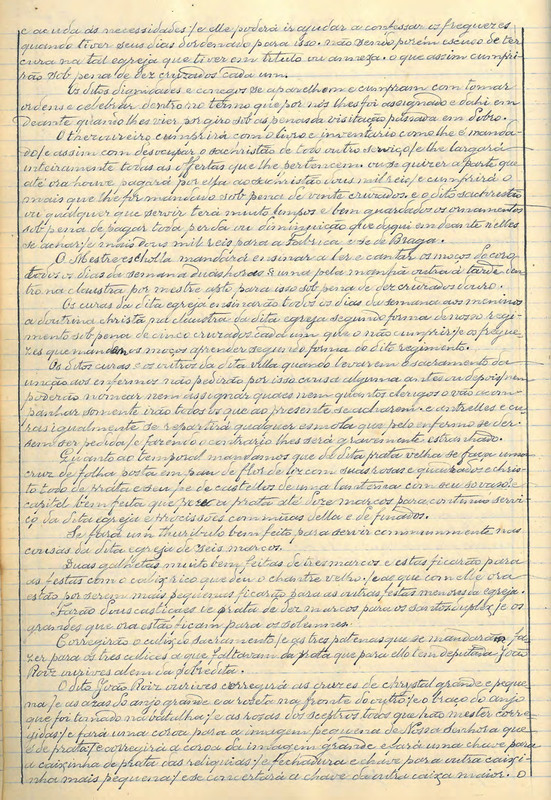 e acuda ás necessidades / e elle poderá ir ajudar a confessar os freguezes
quando tiver seus dias dordenado para isso. não sendo porém escuso de ter
cura na tal egreja que tiver em titulo ou annexa. o que assim cumpri-
rão sob pena de dez cruzados cada um.
Os ditos dignidades e conegos se aparelhem e cumpram com tomar
ordens e celebrar dentro no termo que por nós lhes foi assignado e dahi em
deante quando lhes vier por giro sob as penas da visitação passada em dobro.
O thesoureiro cumprirá com o livro e inventario como lhe é manda-
do / e assim com desocupar o sachristão de todo outro serviço / e lhe largará
inteiramente todas as offertas que lhe pertencem. ou se quizer a parte que
até ora houve pagará por ella ao sachristão dous mil reis / e cumprirá o
mais que lhe foi mandado sob pena de vinte cruzados. e o dito sachristão
ou qualquer que servir terá muito limpos e bem guardados os ornamentos
sob pena de pagar toda perda ou diminuição que daqui em deante nelles
se achar / e mais dous mil reis para a fabrica e sé de Braga.
O Mestre eschola mandará ensinar a ler e cantar os moços do coro
todos os dias da semana duas horas & uma pela manhã outra á tarde den-
tro na claustra por mestre apto para isso sob pena de dez cruzados douro.
Os curas da dita egreja ensinarão todos os dias da semana aos meninos
a doutrina christã na claustra da dita egreja segundo forma de nosso regi-
mento sob pena de cinco cruzados cada um que o não cumprir / e os fregue-
zes que mandem os moços aprender segundo forma do dito regimento.
Os ditos curas e os outros da dita villa quando levarem o sacramento da
uncção aos enfermos não pedirão por isso cousa alguma antes ou depois / nem
poderão nomear nem assignar quaes nem quantos clerigos o vão acom-
panhar somente irão todos os que ao presente se acharem. e entre elles e cu-
ras igualmente se repartirá qualquer esmola que pelo enfermo se der.
sem ser pedida / e fazendo o contrario lhes será gravemente estranhado.
Quanto ao temporal mandamos que da dita prata velha se faça uma
cruz de folha posta em pau de flor de liz com suas rosas e quadrados e chris-
to todo de prata e seu pé de castellos de uma lanterna com seu so vaso e
capitel bem feita que peze a prata até doze marcos para continuo servi-
ço da dita egreja e procissões communas della e de finados.
Se fará um thuribulo bem feito para servir communmente nas
cousas da dita egreja de seis marcos.
Duas galhetas muito bem feitas de tres marcos e estas ficarão para
as festas com o calix rico que deu o chantre velho / e as que com elle ora
estão por serem mais pequenas ficarão para as outras festas menores da egreja.
Farão dous castiçaes de prata de dez marcos para os santos duplex / e os
grandes que ora estão ficam para os solemnes.
Corregirão o calix do sacramento / e as tres patenas que se mandarão fa-
zer para os tres calices a que faltavam da prata que para ello tem deputada João
Roiz ourives alem da sobredita.
O dito João Roiz ourives corregirá as cruzes de chrystal grande e peque-
na / e as azas do anjo grande e a rodela na fronte do outro / e o braço do anjo
que foi tomado na batalha / e as rosas dos sceptros todos que hão mester corre-
gidas / e fará uma coroa para a imagem pequena de Nossa Senhora que
é de prata / e corregirá a coroa da imagem grande e fará uma chave para
a caixinha de prata das reliquias / e fechadura e chave para outra caixi-
nha mais pequena / e se concertará a chave da outra caixa maior. O